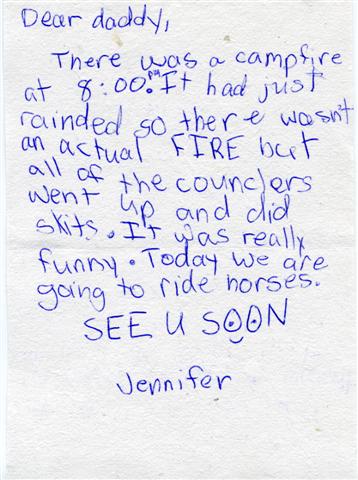 Dear daddy,
There was a campfire
at 8:00.PM It had just
rainded so there wasn't
an actual FIRE but
all of the counclers
went up and did
skits. It was really
funny. Today we are
going to ride horses.
SEE U SOON
Jennifer